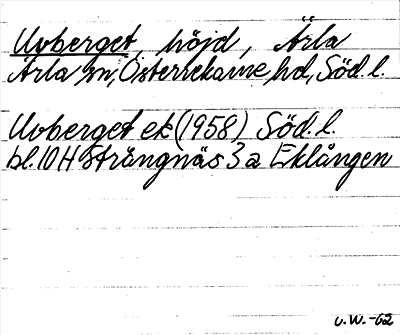 Uvberget, höjd, Ärla
Ärla sn, Österrekarne hd, Söd. l.
Uvberget ek (1958) Söd. l.
bl. 10 H Strängnäs 3 a Eklången
v.W. -62